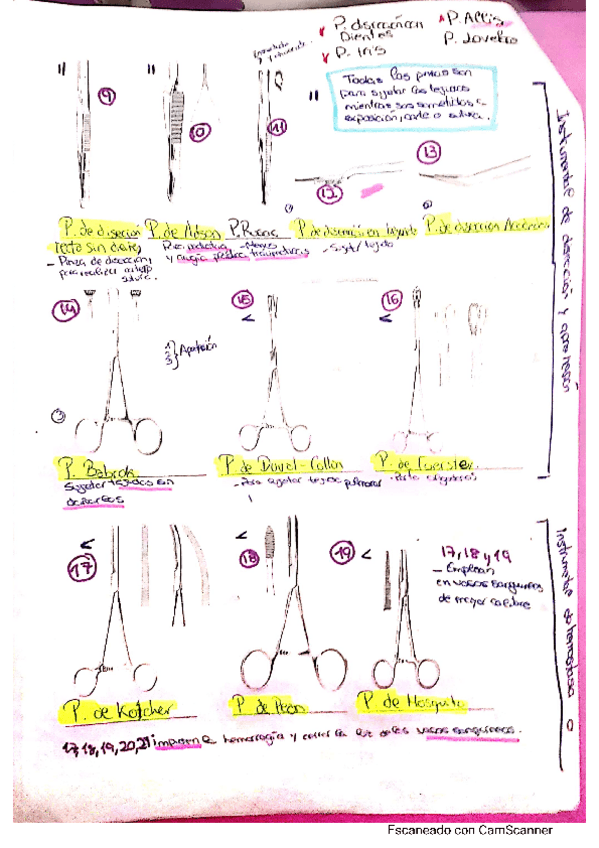 P. disección con
Dientes
P. Iris
P. Allis
P. Lovelace
Todas las pinzas son
para sujetar los tejidos
mientras son sometidos a
exposición, corte o sutura.
Instrumental de disección y aprehensión
9
10
11
12
13
P. de disección
recto sin dientes
- Pinza de disección
para realizar
sutura.
P. de Adson
y cirugía plástica
P. Rusa
P. de disección en bayoneta
- Sujetar tejido
P. de disección
14
15
16
1
2
3
} Aprehensión
P. Babcok
Sujetar tejidos sin
dañarlos
P. de Duval-Collin
- Para sujetar tejido pulmonar
P. de Foerster
17
18
19
17, 18 y 19
- Emplean
en vasos sanguíneos
de mayor calibre
Instrumental de hemostasia
P. de Kotcher
P. de Pean
P. de Mosquito
17, 18, 19, 20, 21 impiden la hemorragia y cierran la luz de los vasos sanguíneos.
Escaneado con CamScanner